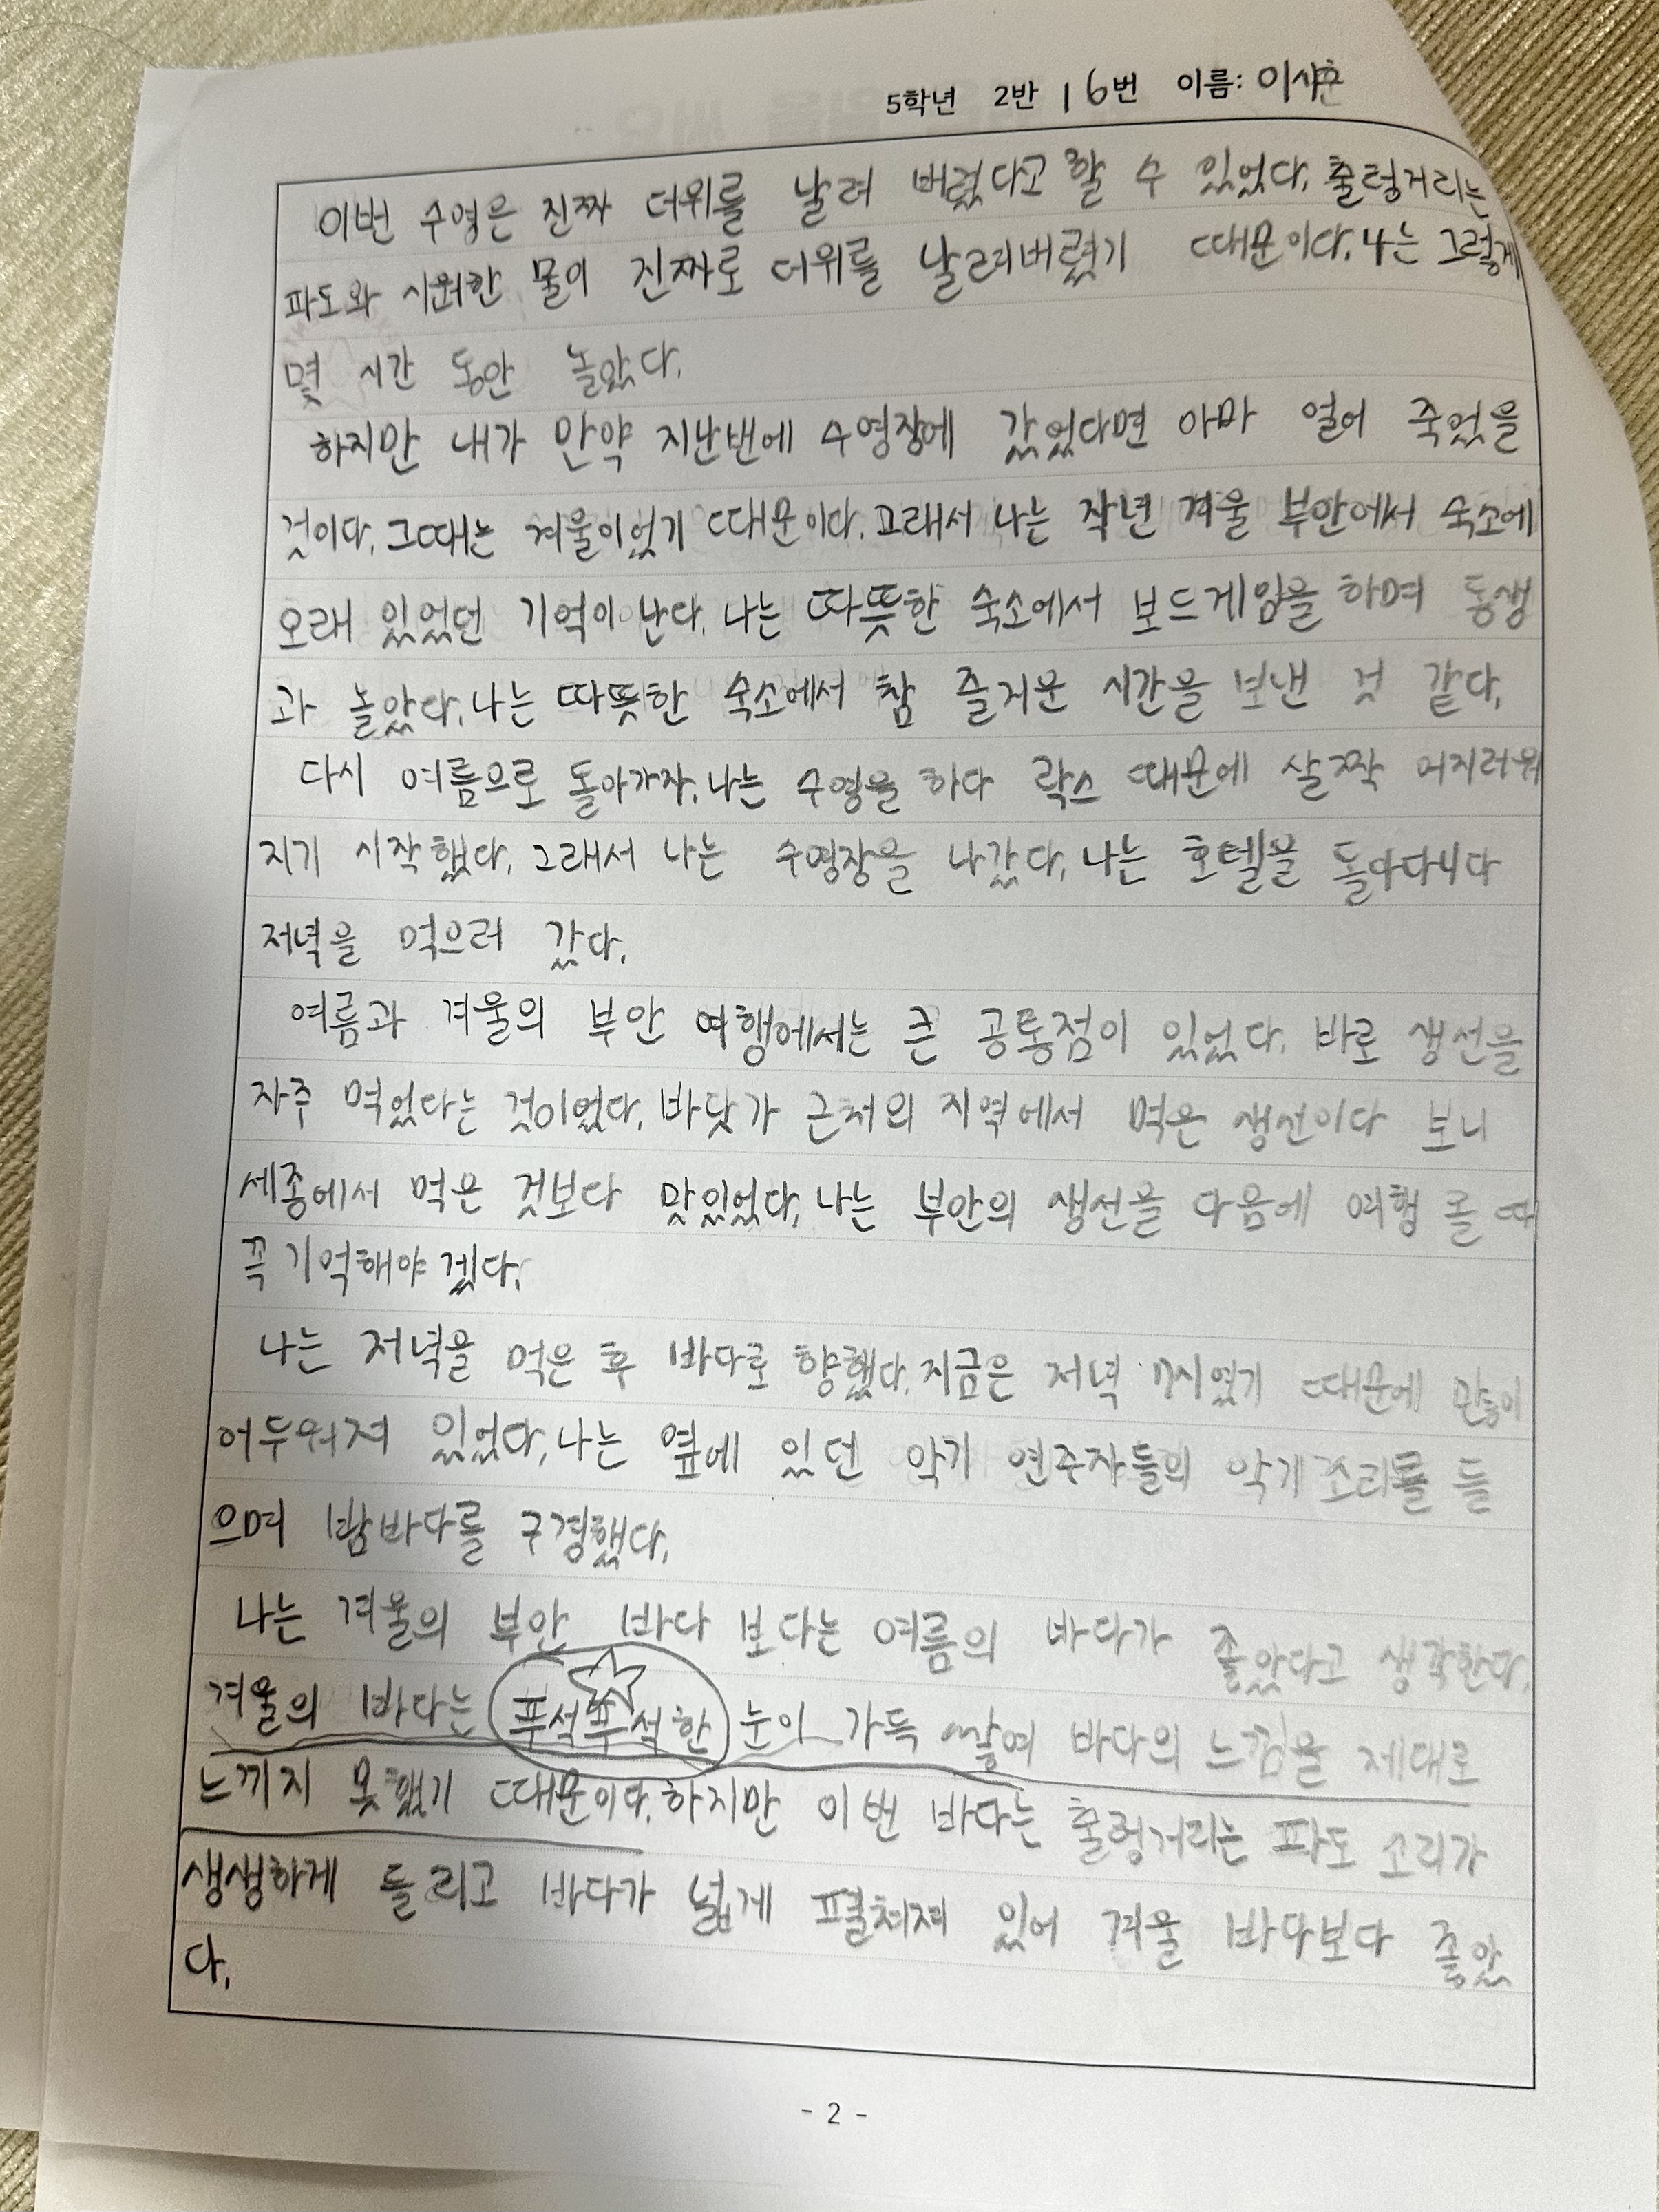 5학년 2반 16번 이름: 이시훈
이번 수영은 진짜 더위를 날려 버렸다고 할 수 있었다. 출렁거리는
파도와 시원한 물이 진짜로 더위를 날려버렸기 때문이다. 나는 그렇게
몇 시간 동안 놀았다.
하지만 내가 만약 지난번에 수영장에 갔었다면 아마 얼어 죽었을
것이다. 그때는 겨울이었기 때문이다. 그래서 나는 작년 겨울 부안에서 숙소에
오래 있었던 기억이 난다. 나는 따뜻한 숙소에서 보드게임을 하며 동생
과 놀았다. 나는 따뜻한 숙소에서 참 즐거운 시간을 보낸 것 같다.
다시 여름으로 돌아가자. 나는 수영을 하다 락스 때문에 살짝 어지러워
지기 시작했다. 그래서 나는 수영장을 나갔다. 나는 호텔을 돌아다니다
저녁을 먹으러 갔다.
여름과 겨울의 부안 여행에서는 큰 공통점이 있었다. 바로 생선을
자주 먹었다는 것이었다. 바닷가 근처의 지역에서 먹은 생선이다 보니
세종에서 먹은 것보다 맛있었다. 나는 부안의 생선을 다음에 여행 올 때
꼭 기억해야 겠다.
나는 저녁을 먹은 후 바다로 향했다. 지금은 저녁 7시였기 때문에 많이
어두워져 있었다. 나는 옆에 있던 악기 연주자들의 악기 소리를 들
으며 밤바다를 구경했다.
나는 겨울의 부안 바다 보다는 여름의 바다가 좋았다고 생각한다.
겨울의 바다는 푸석푸석한 눈이 가득 쌓여 바다의 느낌을 제대로
느끼지 못했기 때문이다. 하지만 이번 바다는 출렁거리는 파도 소리가
생생하게 들리고 바다가 넓게 펼쳐져 있어 겨울 바다보다 좋았
다.
- 2 -